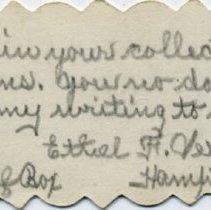 in your collec
ns. You no do
my writing to
Ethel H. Ve
Box Hamp